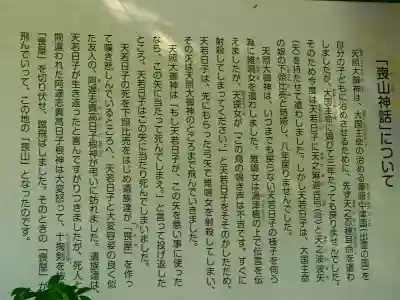 「喪山神話」について
天照大御神は、大国主命の治める葦原中津国(出雲の国)を
自分の子どもに治めさせるために、先ず天之忍穂耳命を遣わ
しましたが、大国主命に媚びて三年たっても戻りませんでした。
そのため今度は天若日子に天之麻迦古弓(弓)と天之波波矢
(矢)を持たせて遣わしました。しかし天若日子は、大国主命
の娘の下照比売と結婚し、八年戻りませんでした。
天照大御神は、いつまでも戻らない天若日子の様子を伺う
為に雉鳴女を遣わしました。雉鳴女は湯津楓の上で伝言を伝
えましたが、天探女が「この鳥の鳴き声は不吉です。すぐに
射殺してしまってください」と天若日子をそそのかしたため、
天若日子は、先にもらった弓矢で雉鳴女を射殺してしまい、
その矢は天照大御神のところまで飛んでいきました。
天照大御神は「もし天若日子が、この矢を悪い事に使った
なら、この矢に当たって死んでしまえ。」と言って投げ返した
ところ、天若日子はこの矢に当たり死んでしまいました。
天若日子の死を下照比売をはじめ遺族達が「喪屋」を作っ
て嘆き悲しんでいるところへ、天若日子と大変容姿の良く似
た友人の、阿遅志貴高日子根神が弔いに訪れました。遺族達は、
天若日子が生き返ったと喜んですがりつきましたが、死人と
間違われた阿遅志貴高日子根神は大変怒って、十掬剣を
「喪屋」を切り伏せ、蹴飛ばしました。そのときの「喪屋」が
飛んでいって、この地の「喪山」となったのです。